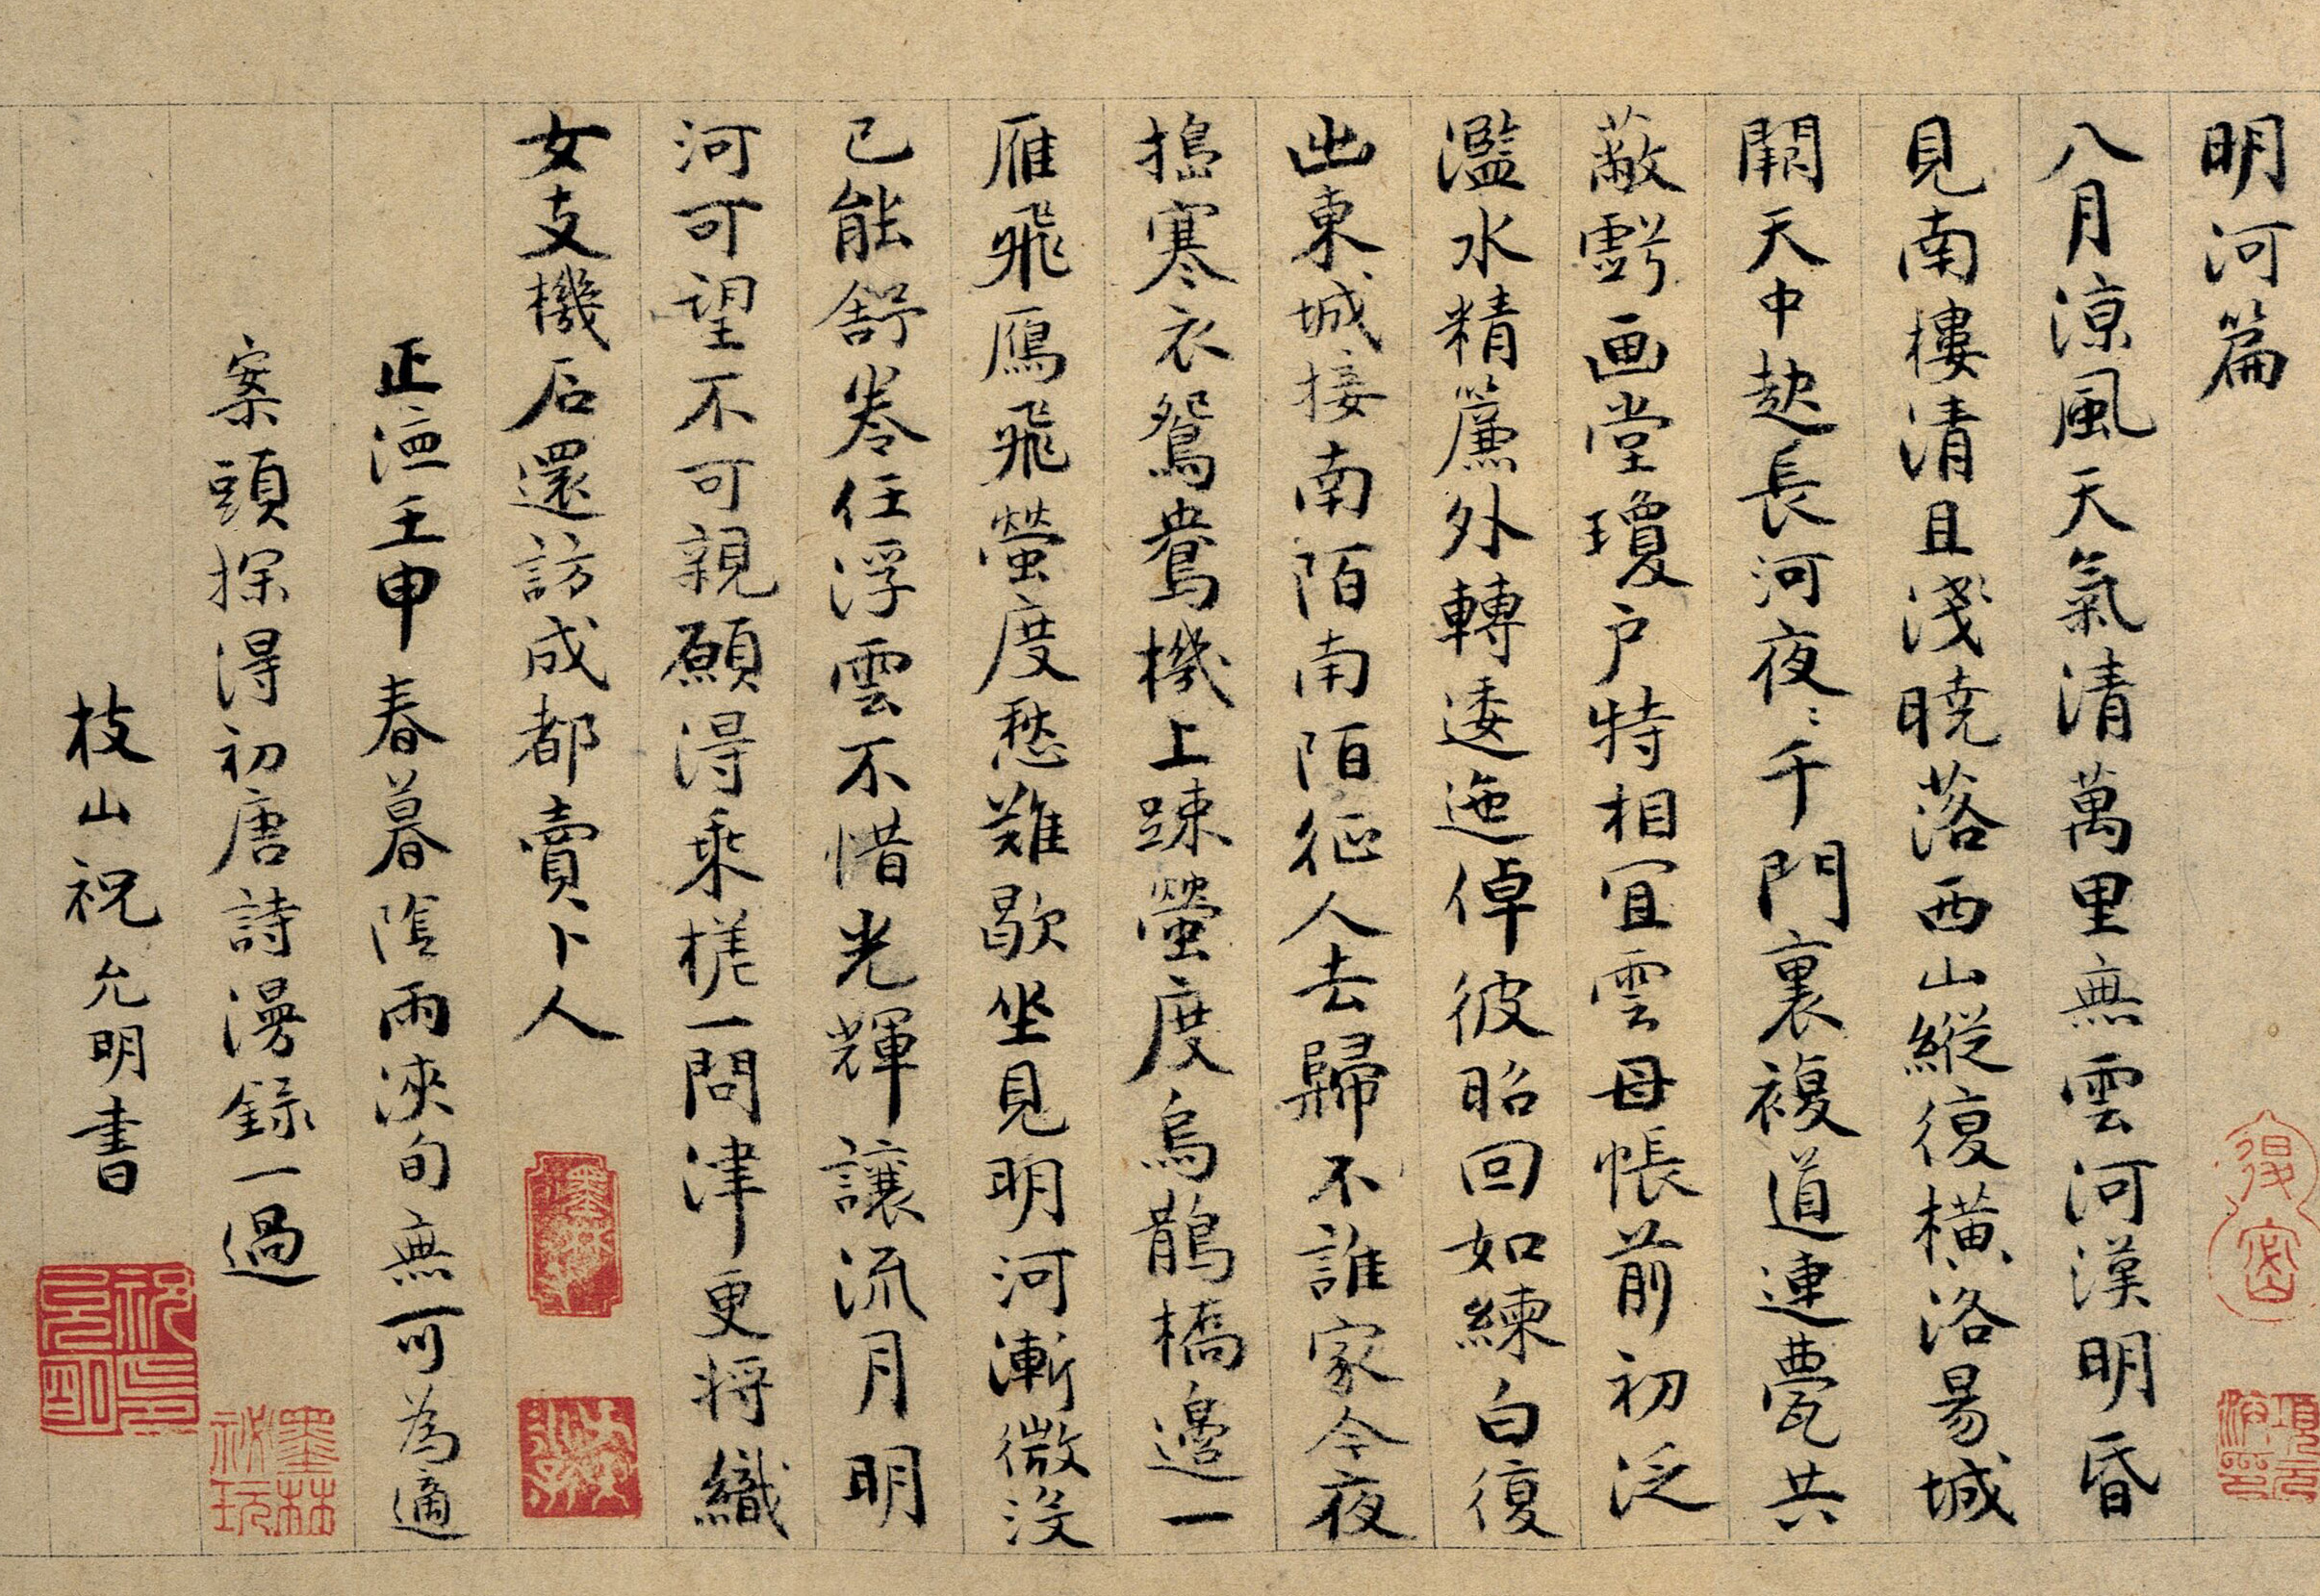 明河篇
八月涼風天氣清萬里無雲河漢明昏
見南樓清且淺曉落西山縱復橫洛昜城
闕天中起長河夜〻千門裏複道連甍共
蔽虧画堂瓊户特相宜雲母帳前初泛
濫水精簾外轉逶迤倬彼昭回如練白復
出東城接南陌南陌征人去歸不誰家今夜
搗寒衣鴛鴦機上踈螢度烏鵲橋邊一
雁飛鴈飛螢度愁難歇坐見明河漸微没
已能舒卷任浮雲不惜光輝讓流月明
河可望不可親願得乘槎一問津更将織
女支機石還訪成都賣卜人
正德壬申春暮陰雨浹旬無可為適
案頭探得初唐詩漫錄一過
枝山祝允明書
祝允明印
墨林秘玩